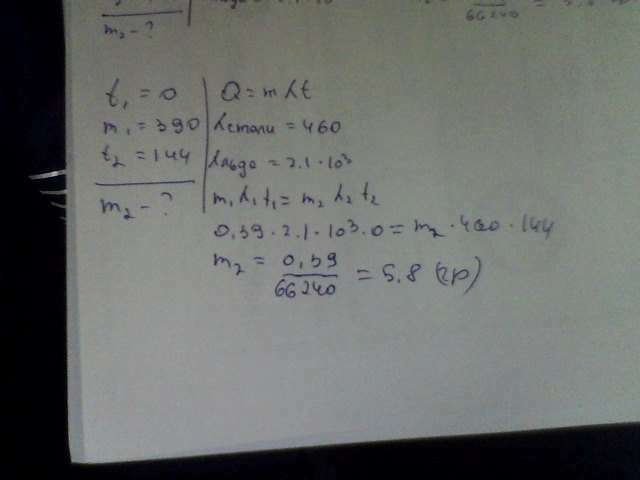 m₂ - ?
66240
t₁ = 0
m₁ = 390
t₂ = 144
m₂ - ?
Q = m λ t
λстали = 460
λльда = 2.1 · 10³
m₁ λ₁ t₁ = m₂ λ₂ t₂
0,39 · 2.1 · 10³ · 0 = m₂ · 460 · 144
m₂ = 0,39 / 66240 = 5,8 (гр)